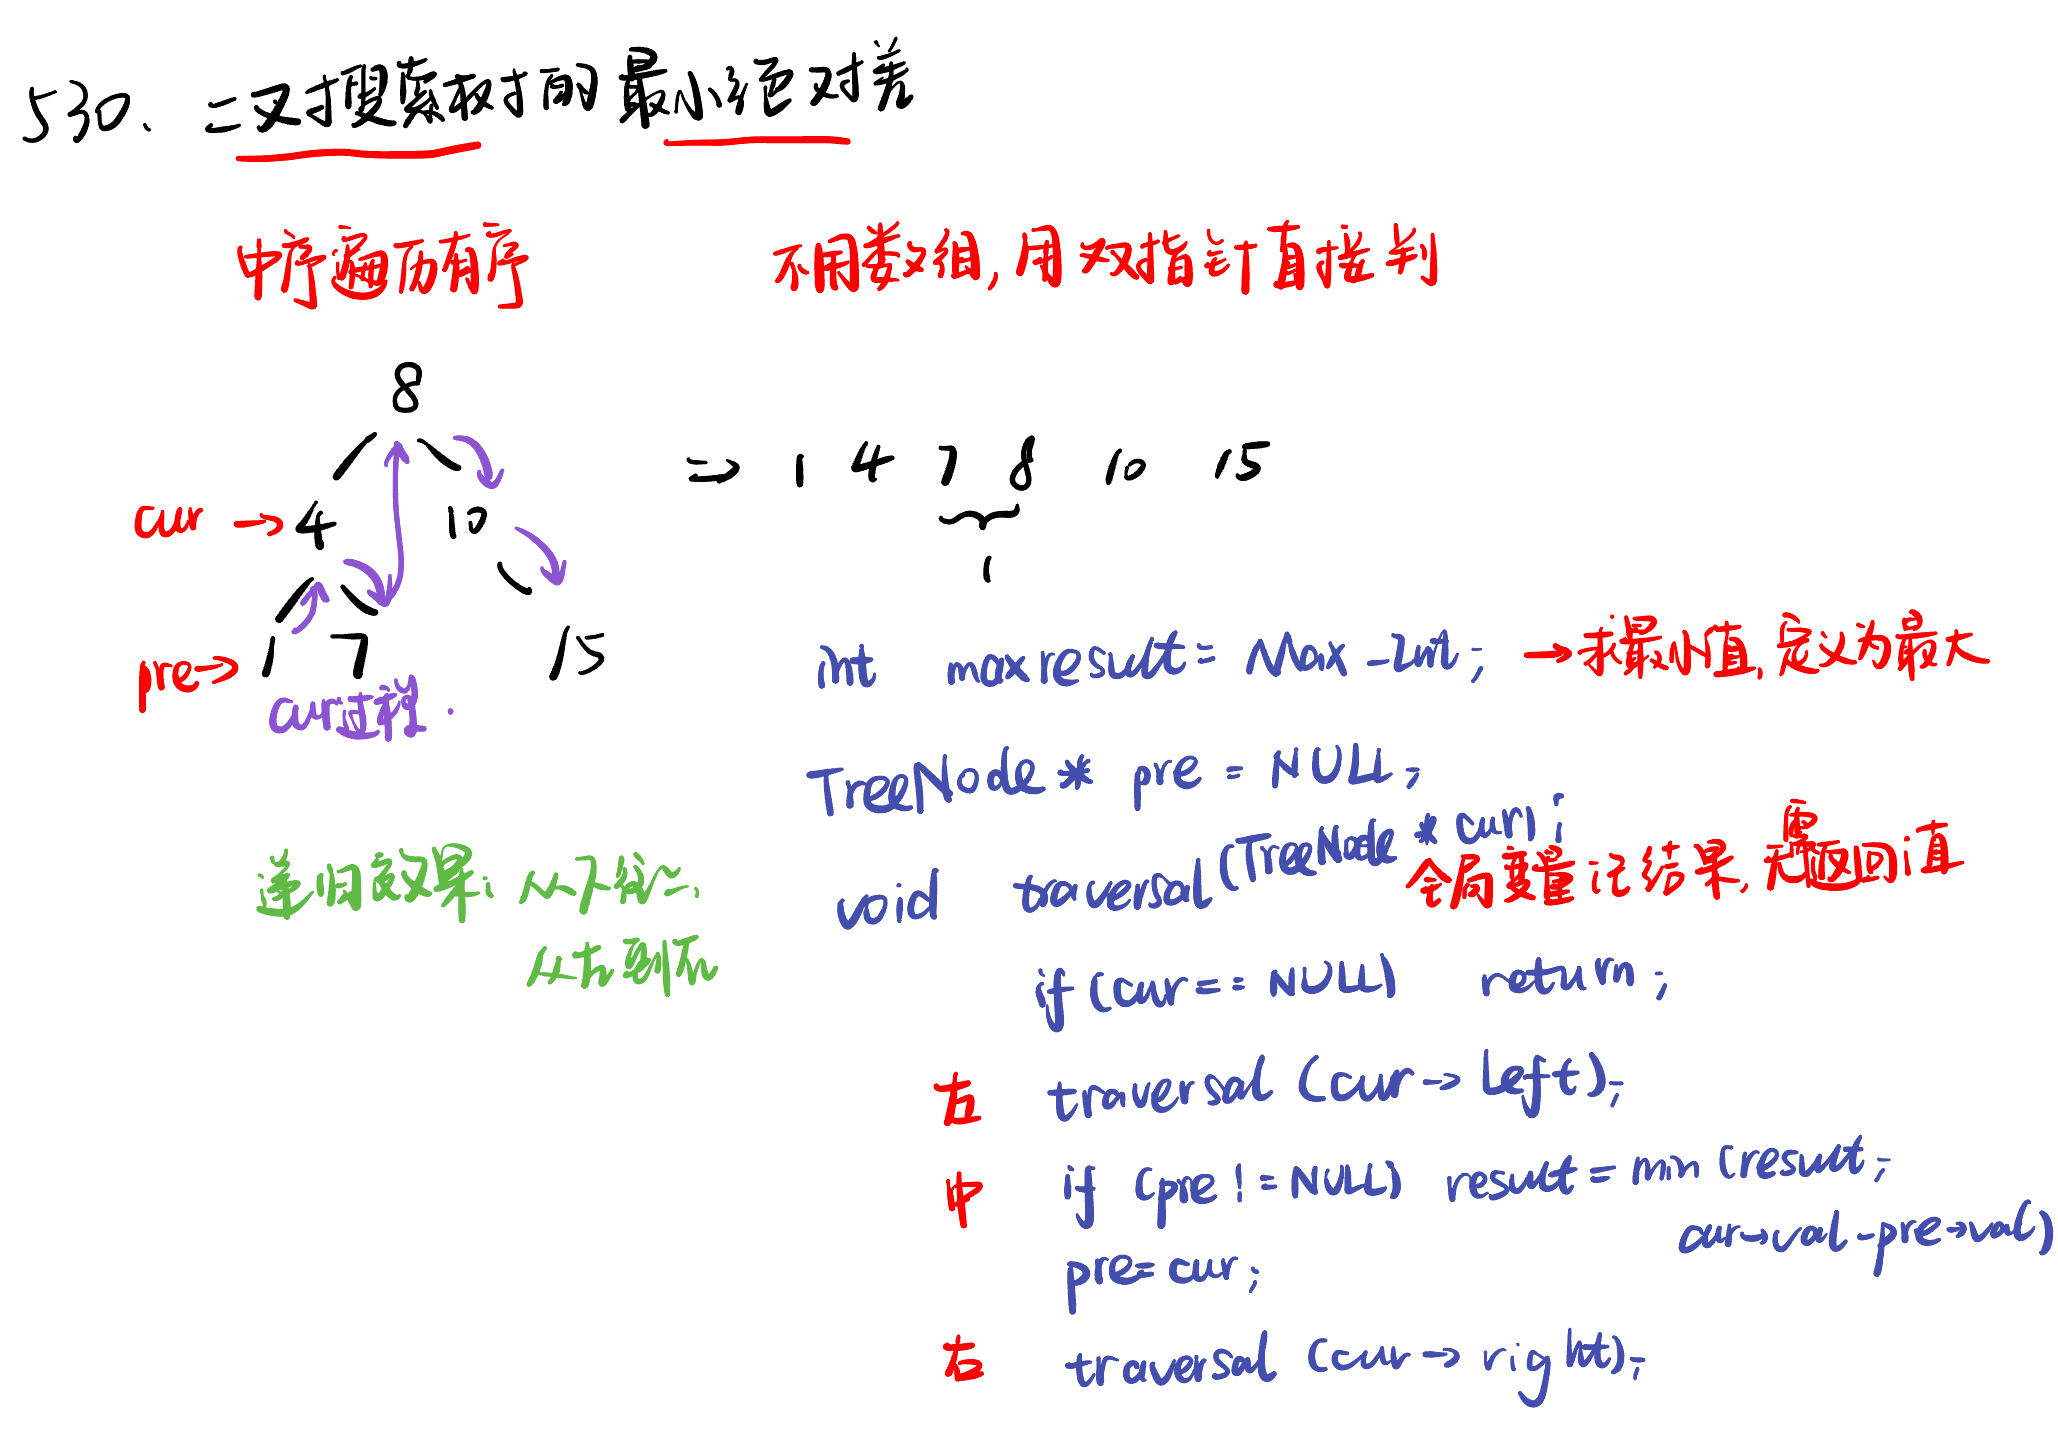 530. 二叉搜索树的最小绝对差
中序遍历有序
不用数组,用双指针直接判
8
cur → 4 10
pre→ 1 7 15
cur过程.
=> 1 4 7 8 10 15
1
int maxresult = Max_Int; →求最小值,定义为最大
TreeNode* pre = NULL;
void traversal(TreeNode * cur);
全局变量记结果,无需返回值
递归效果: 从下往上,
从左到右
if (cur == NULL) return;
左 traversal (cur→left);
中 if (pre != NULL) result = min (result;
cur→val-pre→val)
pre=cur;
右 traversal (cur→right);